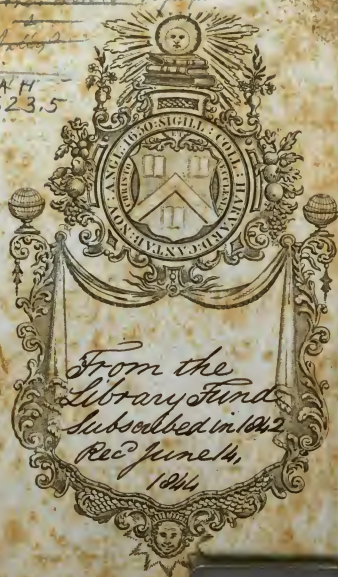 AH
23.5
SIGILL : COLL : HARVARD : CANTAB : NOV : ANGL : 1650 :
From the
Library Fund
Subscribed in 1842
Recd June 14,
1844